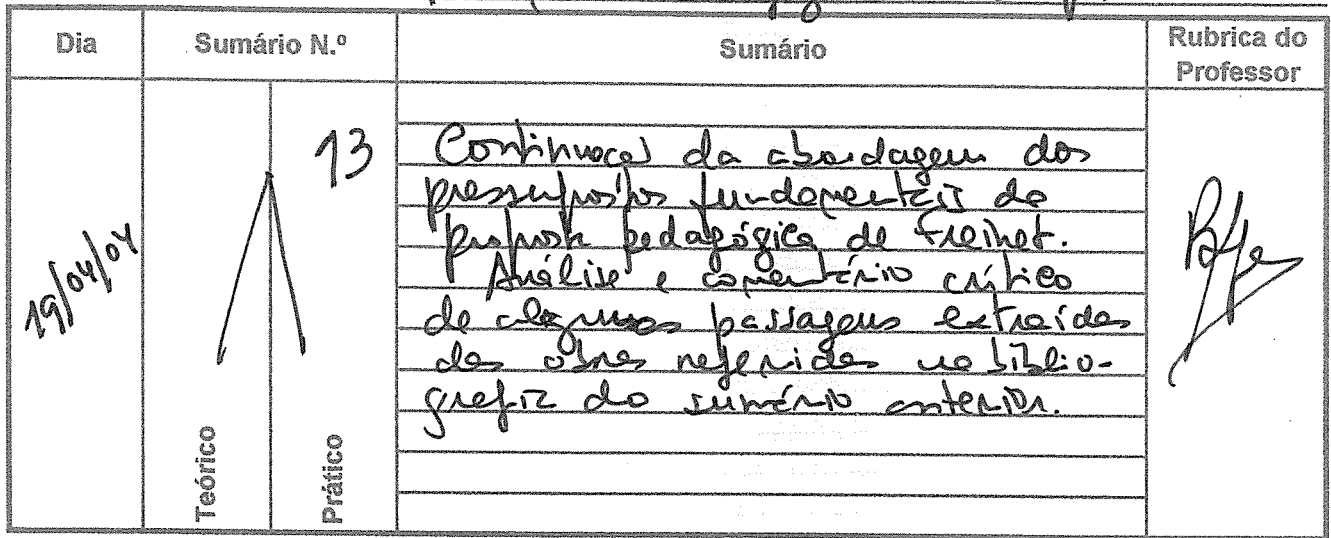 Dia
Sumário N.º
Sumário
Rubrica do
Professor
19/04/04
13
Continuação da abordagem dos
pressupostos fundamentais da
proposta pedagógica de Freinet.
Análise e comentário crítico
de algumas passagens extraídas
das obras referidas na biblio-
grafia do sumário anterior.
Teórico
Prático